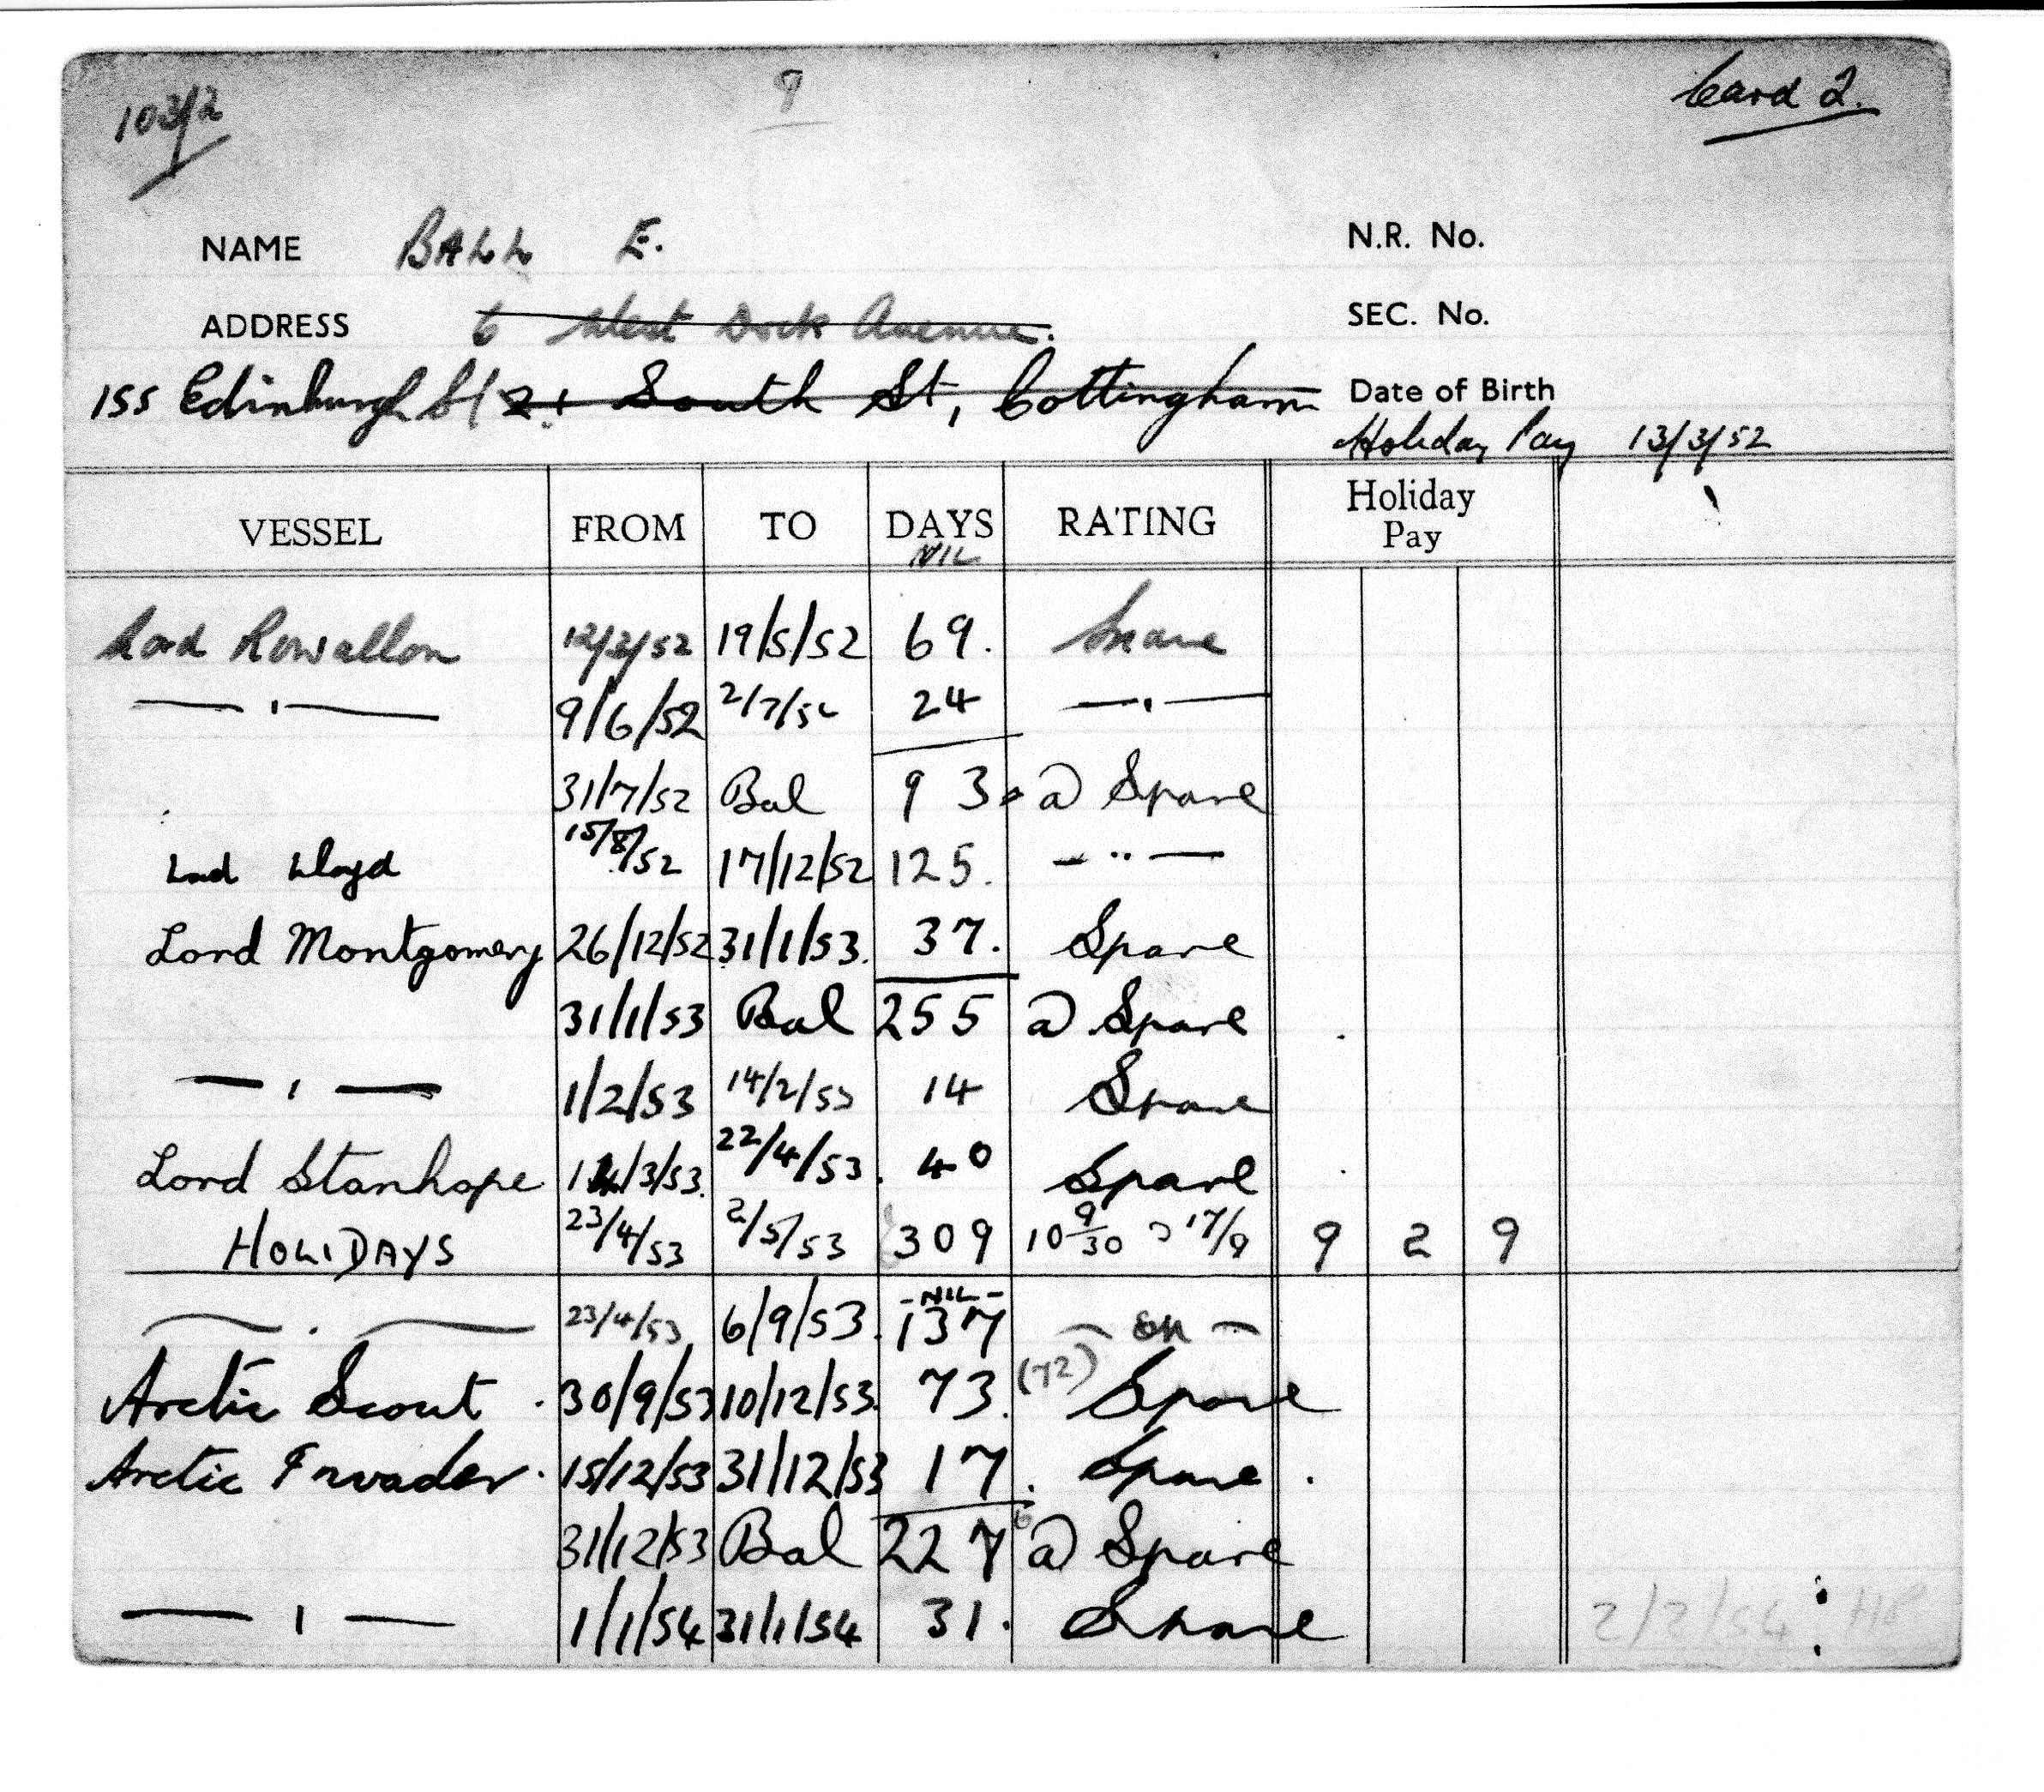 103/2 9 Card 2.
NAME BALL E. N.R. No.
ADDRESS 6 West Dock Avenue. SEC. No.
155 Edinburgh St 21 South St, Cottingham Date of Birth
Holiday Pay 13/3/52
VESSEL FROM TO DAYS RATING Holiday Pay
NIL
Lord Rowallon 12/3/52 19/5/52 69. Spare
— " — 9/6/52 2/7/52 24 — " —
31/7/52 Bal 93 @ Spare
Lord Lloyd 15/8/52 17/12/52 125. — " —
Lord Montgomery 26/12/52 31/1/53. 37. Spare
31/1/53 Bal 255 @ Spare
— " — 1/2/53 14/2/53 14 Spare
Lord Stanhope 14/3/53. 22/4/53. 40 Spare
HOLIDAYS 23/4/53 2/5/53 309 10 9/30 @ 17/9 9 2 9
- NIL -
— " — 23/4/53 6/9/53. 137
Arctic Scout 30/9/53 10/12/53. 73. (72) Spare
Arctic Invader 15/12/53 31/12/53 17. Spare
31/12/53 Bal 227 6 @ Spare
— " — 1/1/54 31/1/54 31. Spare 2/2/54 HP